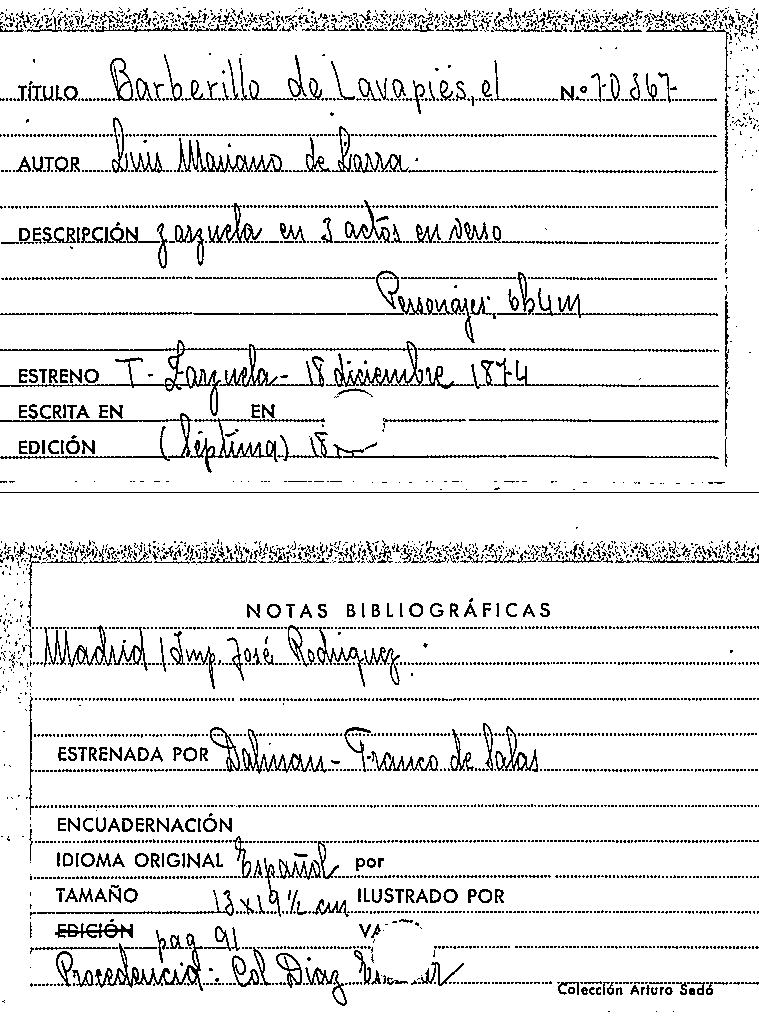 TÍTULO Barberillo de Lavapiés, el N.º 70867
AUTOR Luis Mariano de Larra.
DESCRIPCIÓN zarzuela en 3 actos en verso
Personajes: 6h4m
ESTRENO T. Zarzuela - 18 diciembre 1874
ESCRITA EN EN
EDICIÓN (Séptima) 18
NOTAS BIBLIOGRÁFICAS
Madrid / Imp. José Rodriguez.
ESTRENADA POR Dalmau - Franco de Salas
ENCUADERNACIÓN
IDIOMA ORIGINAL Español por
TAMAÑO 13 x 19 ½ cm ILUSTRADO POR
EDICIÓN pag 91 VA
Procedencia: Col Diaz
Colección Arturo Sedó